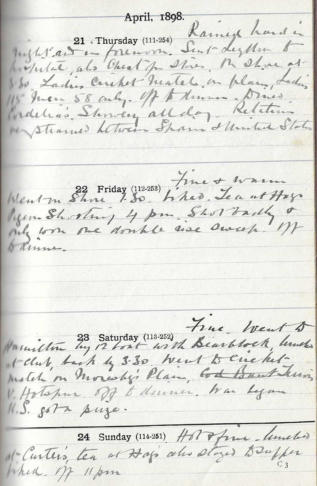 April, 1898.
21 Thursday (111-254) Rained hard in
night and in forenoon. Sent to
hospital, also for . On shore at
3.30 Ladies Cricket Match on plain, Ladies
115 Men 58 only. Off to dinner. Dined
Cordelia. Showery all day. Relations
strained between Spain & United States
22 Friday (112-253) Fine & warm
Went on Shore 1.30. biked. Tea at Hags
Pigeon Shooting 4 pm. Shot badly &
only won one double rise sweep. Off
to dinner.
23 Saturday (113-252) Fine. Went to
Hamilton by 12 boat with , lunched
at Club, back by 3.30. Went to Cricket
match on Plain,
v. Hotspur. off to dinner. War began
U.S. got a prize.
24 Sunday (114-251) Hot & fine. lunched
at Carter's, tea at Hags also stayed to supper
biked. off 11 pm
C 3